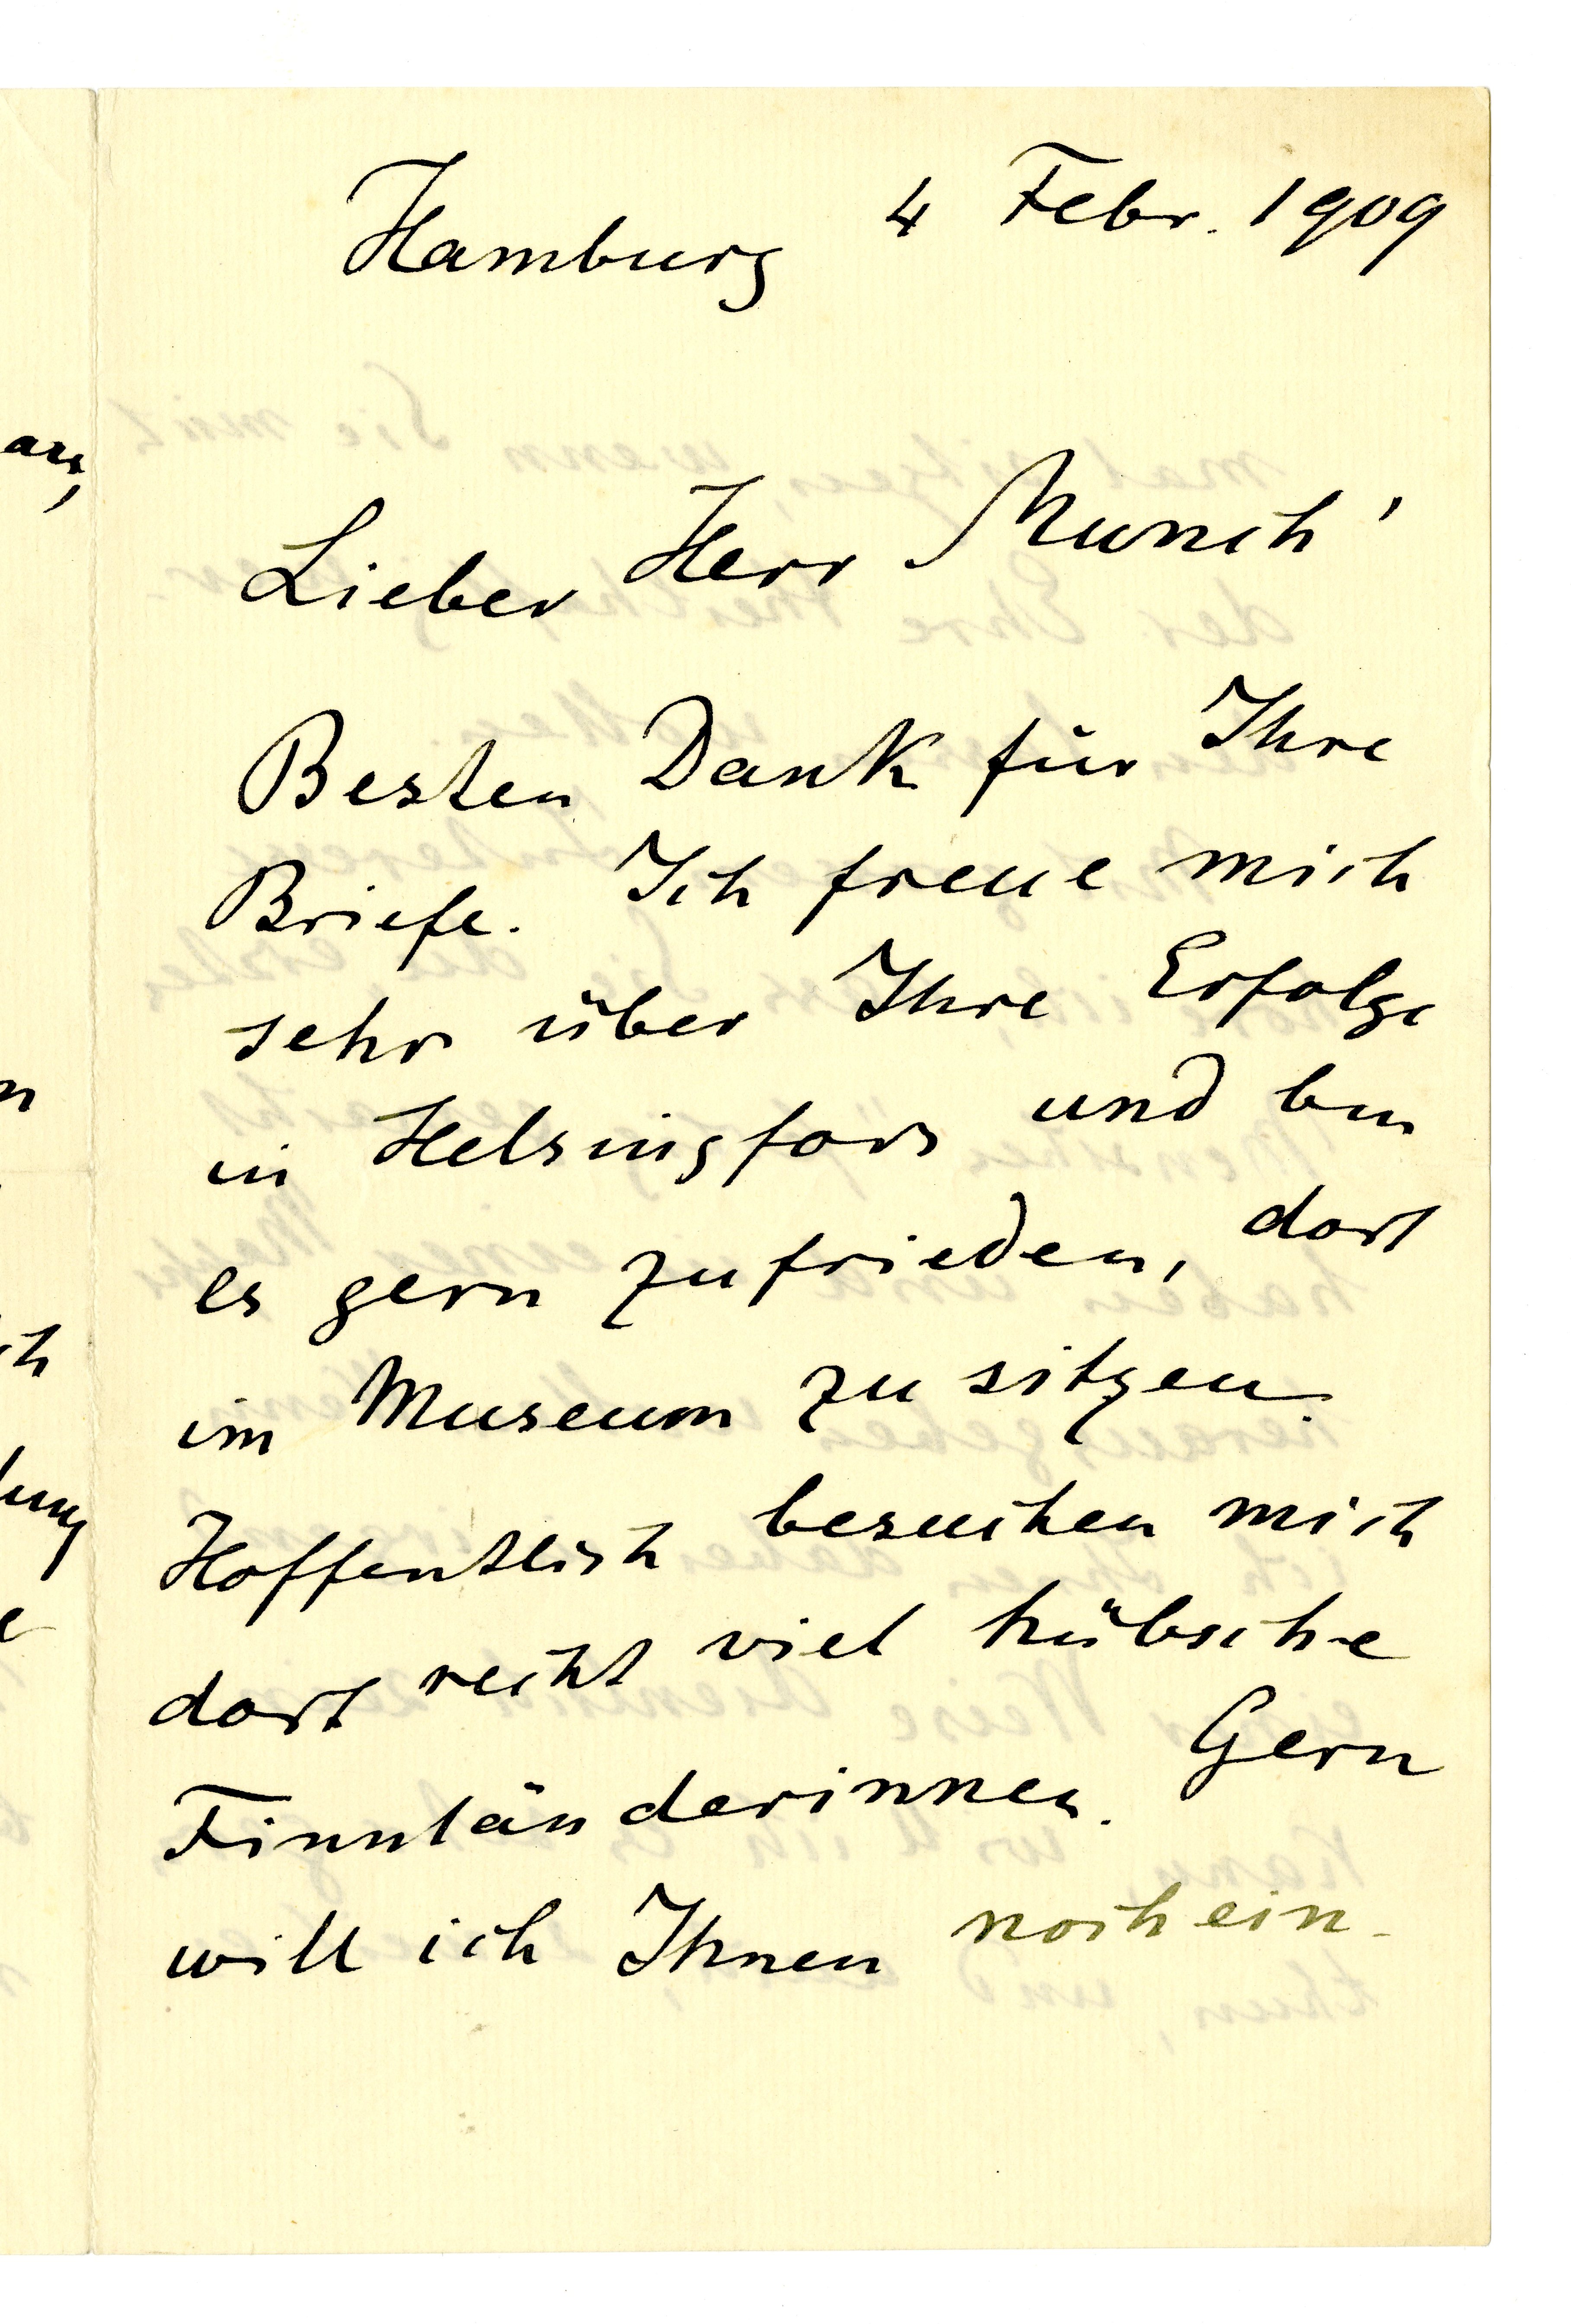 Hamburg 4 Febr. 1909
Lieber Herr Munch'
Besten Dank für Ihre
Briefe. Ich freue mich
sehr über Ihre Erfolge
in Helsingfors und bin
es gern zufrieden, dort
im Museum zu sitzen.
Hoffentlich besuchen mich
dort recht viel hübsche
Finnländerinnen. Gern
will ich Ihnen noch ein-